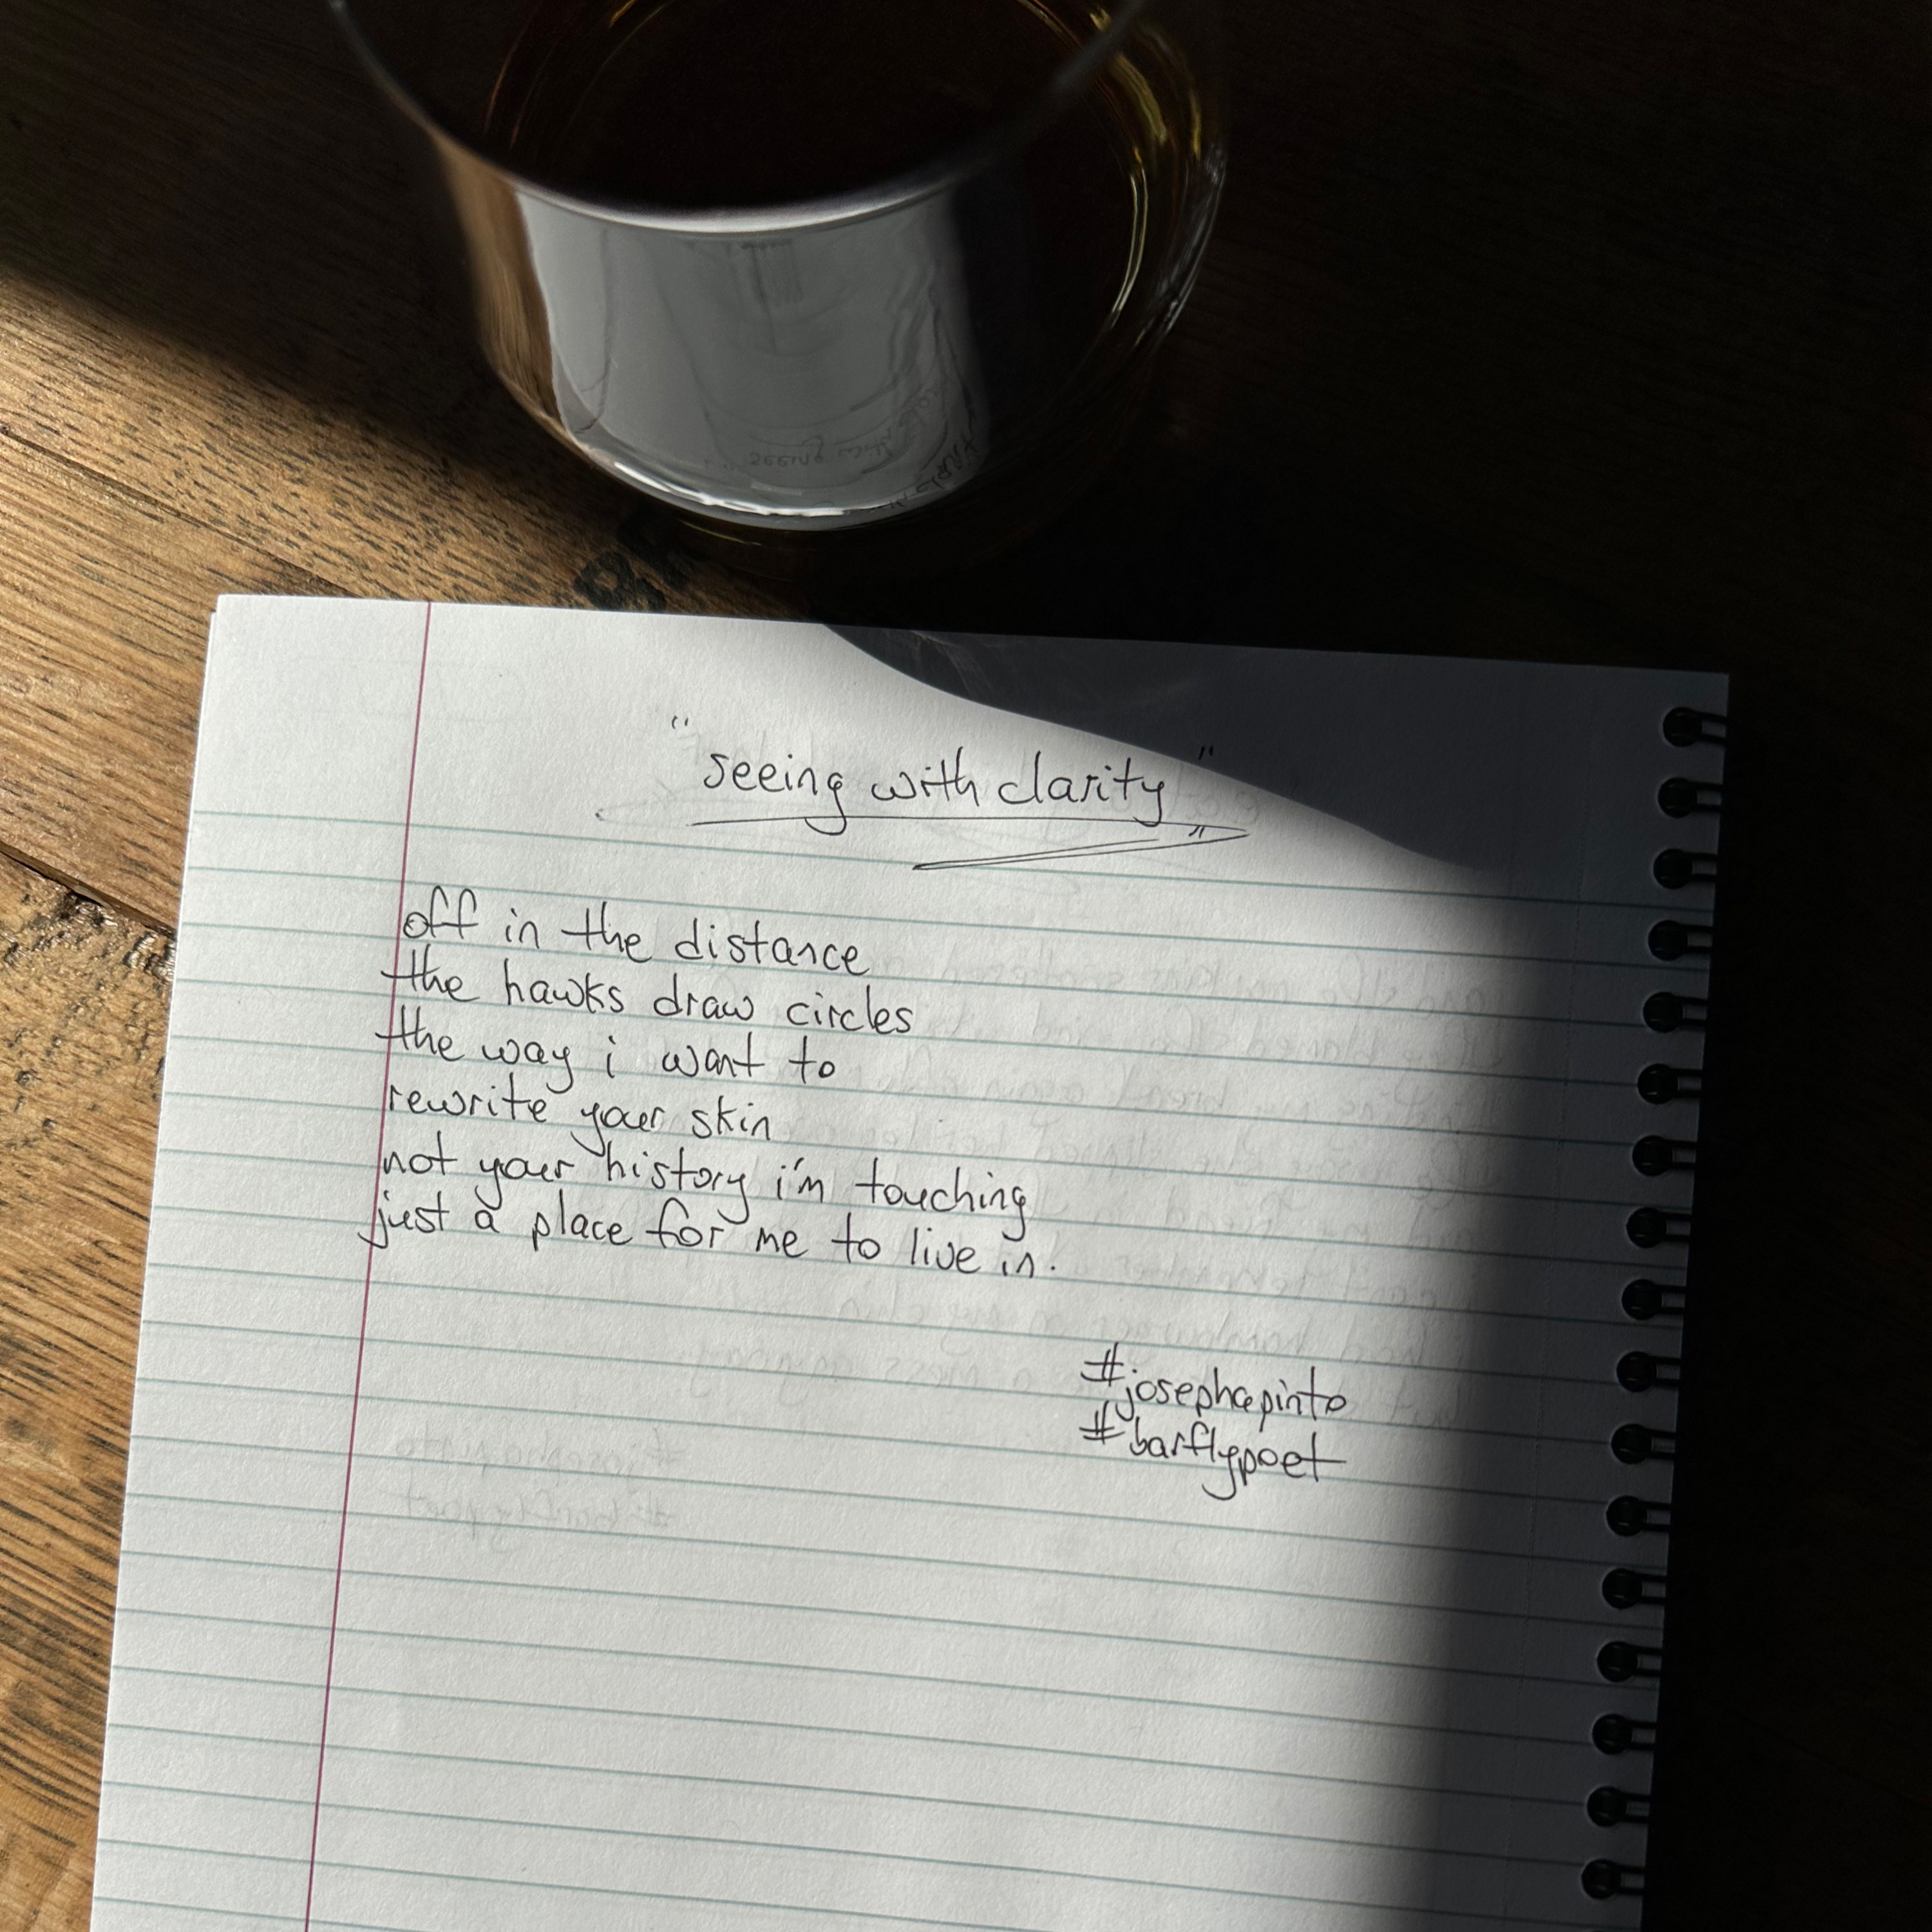 "seeing with clarity"
off in the distance
the hawks draw circles
the way i want to
rewrite your skin
not your history i'm touching
just a place for me to live in.
#josephapinto
#barflypoet